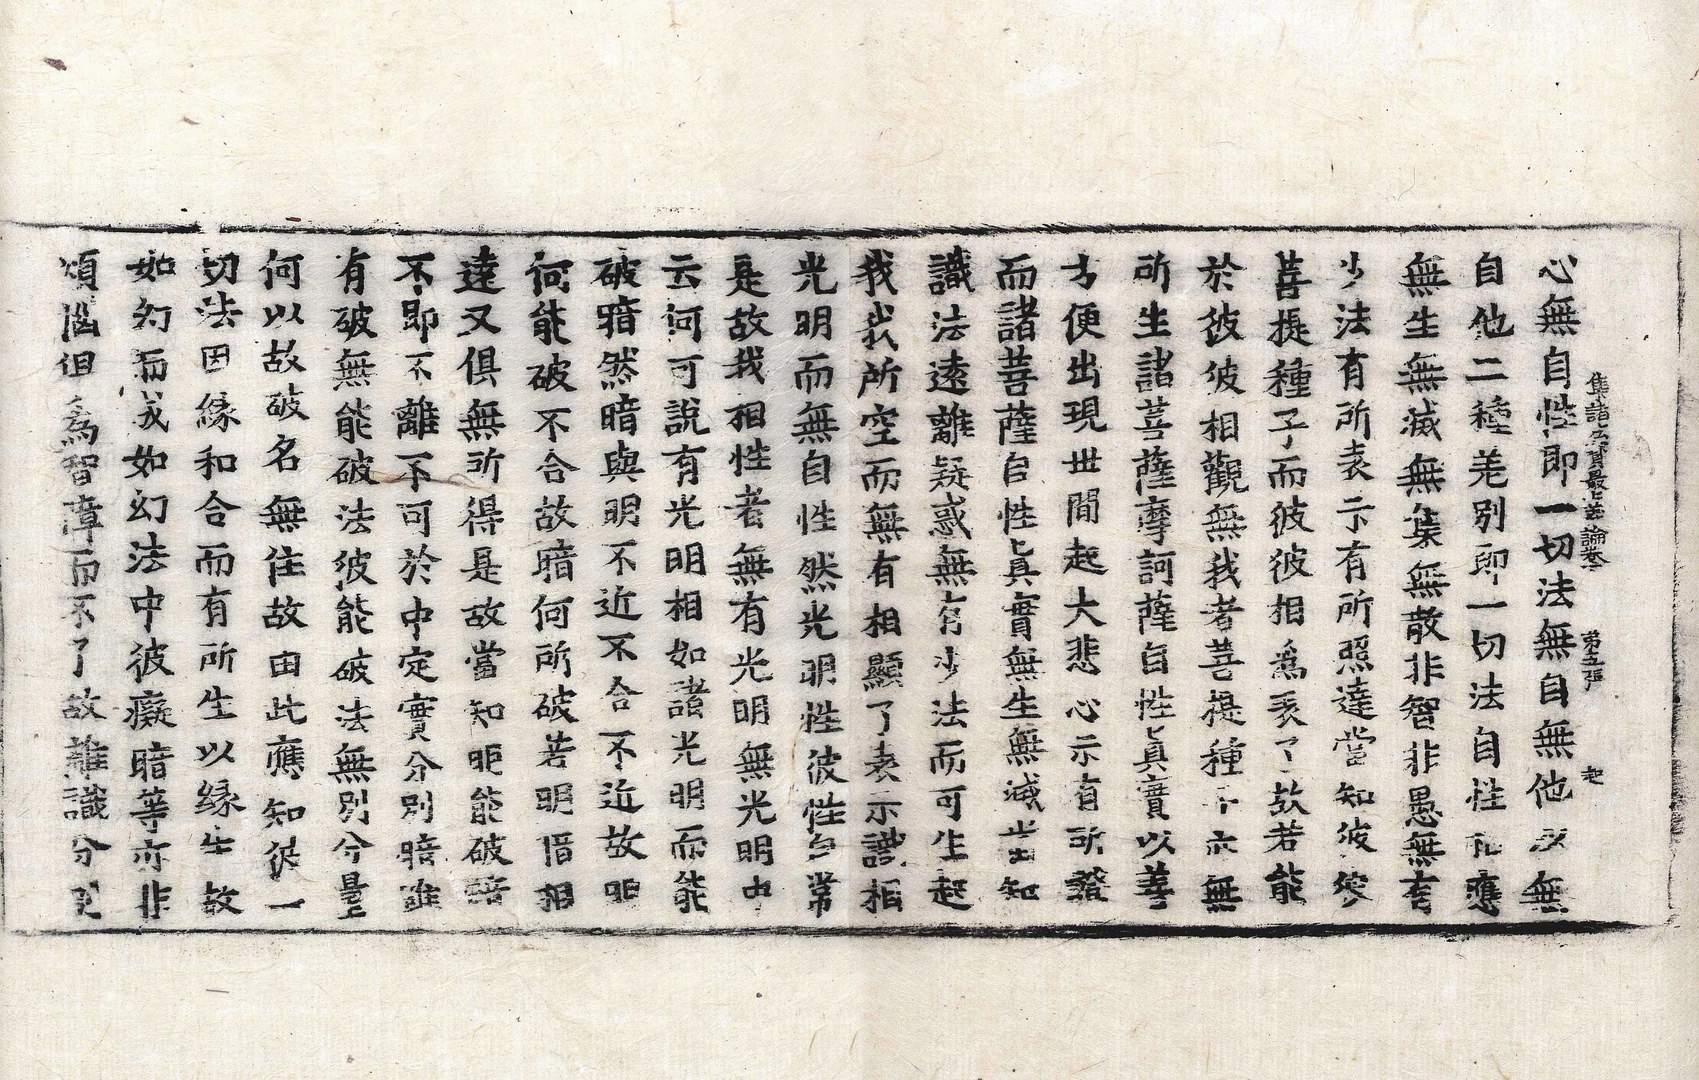 集諸法寶最上義論卷 第五張 起
心無自性即一切法無自無他以無
自他二種差別即一切法自性相應
無生無滅無集無散非智非愚無有
少法有所表示有所照達當知彼安
菩提種子而彼彼相為表了故若能
於彼彼相觀無我者菩提種子亦無
所生諸菩薩摩訶薩自性真實以善
方便出現世間起大悲心示有所證
而諸菩薩自性真實無生無滅當知
識法遠離疑惑無有少法而可生起
我我所空而無有相顯了表示識相
光明而無自性然光明性彼性自常
是故我相性者無有光明無光明中
云何可說有光明相如諸光明而能
破暗然暗與明不近不合不近故明
何能破不合故暗何所破若明暗相
違又俱無所得是故當知明能破暗
不即不離不可於中定實分別暗雖
有破無能破法彼能破法無別分量
何以故破名無住故由此應知彼一
切法因緣和合而有所生以緣生故
如幻而成如幻法中彼癡暗等亦非
煩惱但為智障而不了故雖識分別